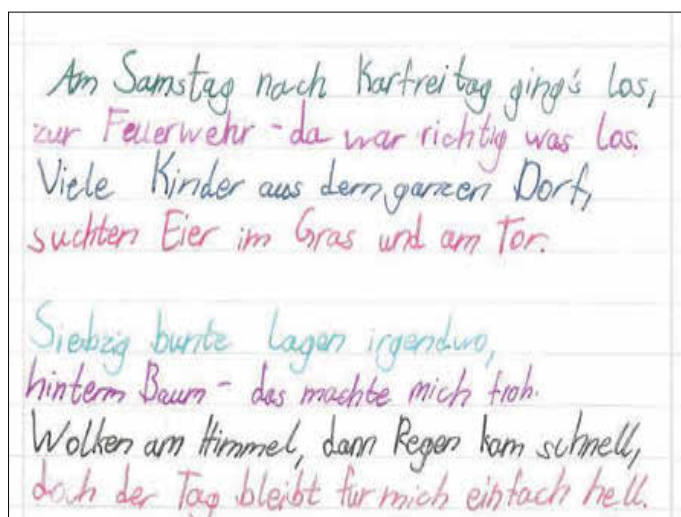 Am Samstag nach Karfreitag ging's los,
zur Feuerwehr - da war richtig was los.
Viele Kinder aus dem ganzen Dorf,
suchten Eier im Gras und am Tor.
Siebzig bunte lagen irgendwo,
hinterm Baum - das machte mich froh.
Wolken am Himmel, dann Regen kam schnell,
doch der Tag bleibt für mich einfach hell.